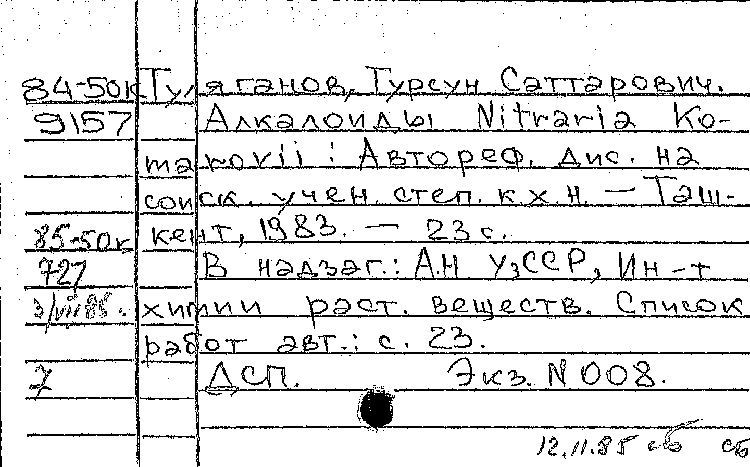 84-50к Туляганов, Турсун Саттарович.
9157 Алкалоиды Nitraria Ko-
marovii : Автореф. дис. на
соиск. учен. степ. к х н. — Таш-
85-50к кент, 1983. — 23 с.
727 В надзаг.: АН УзССР, Ин-т
3/VII 85. химии раст. веществ. Список
работ авт.: с. 23.
7 ДСП. Экз. N 008.
12.11.85 сб сб